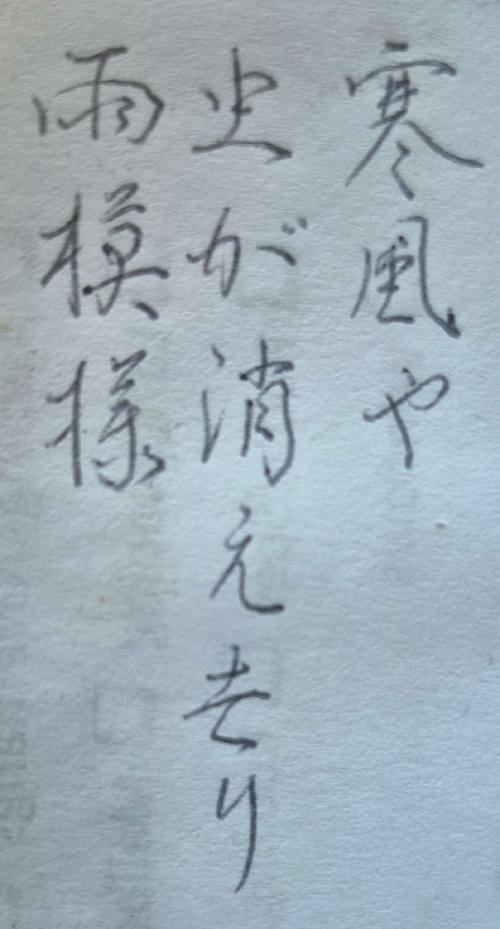 寒風や
虫が消え去り
雨模様